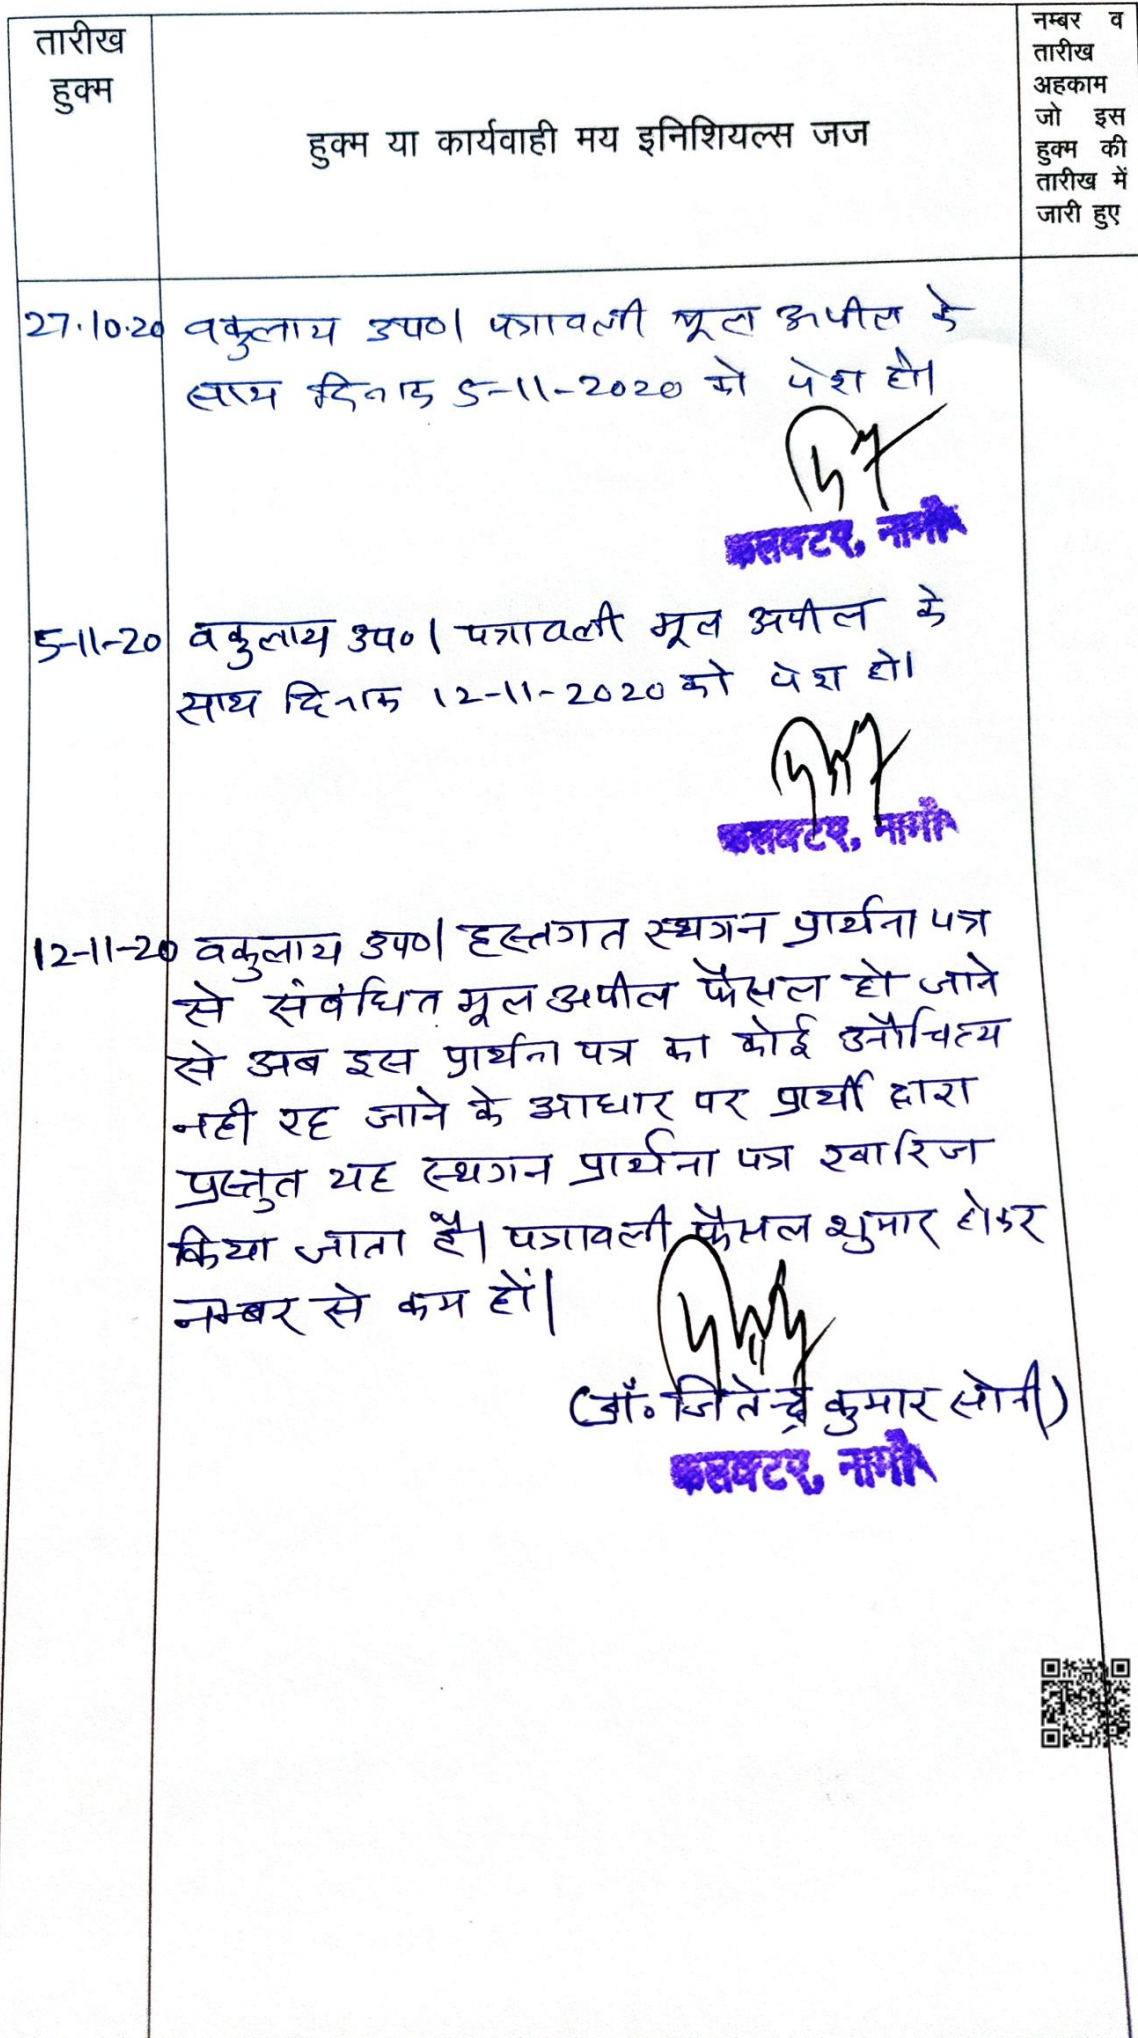 तारीख
हुक्म
हुक्म या कार्यवाही मय इनिशियल्स जज
नम्बर व
तारीख
अहकाम
जो इस
हुक्म की
तारीख में
जारी हुए
27.10.20 वकुलाय उप०। पत्रावली मूल अपील के
साथ दिनांक 5-11-2020 को पेश हो।
कलक्टर, नागौर
5-11-20 वकुलाय उप०। पत्रावली मूल अपील के
साथ दिनांक 12-11-2020 को पेश हो।
कलक्टर, नागौर
12-11-20 वकुलाय उप०। हस्तगत स्थगन प्रार्थना पत्र
से संबंधित मूल अपील फैसल हो जाने
से अब इस प्रार्थना पत्र का कोई औचित्य
नही रह जाने के आधार पर प्रार्थी द्वारा
प्रस्तुत यह स्थगन प्रार्थना पत्र खारिज
किया जाता है। पत्रावली फैसल शुमार होकर
नम्बर से कम हों।
(डॉ. जितेन्द्र कुमार सोनी)
कलक्टर, नागौर